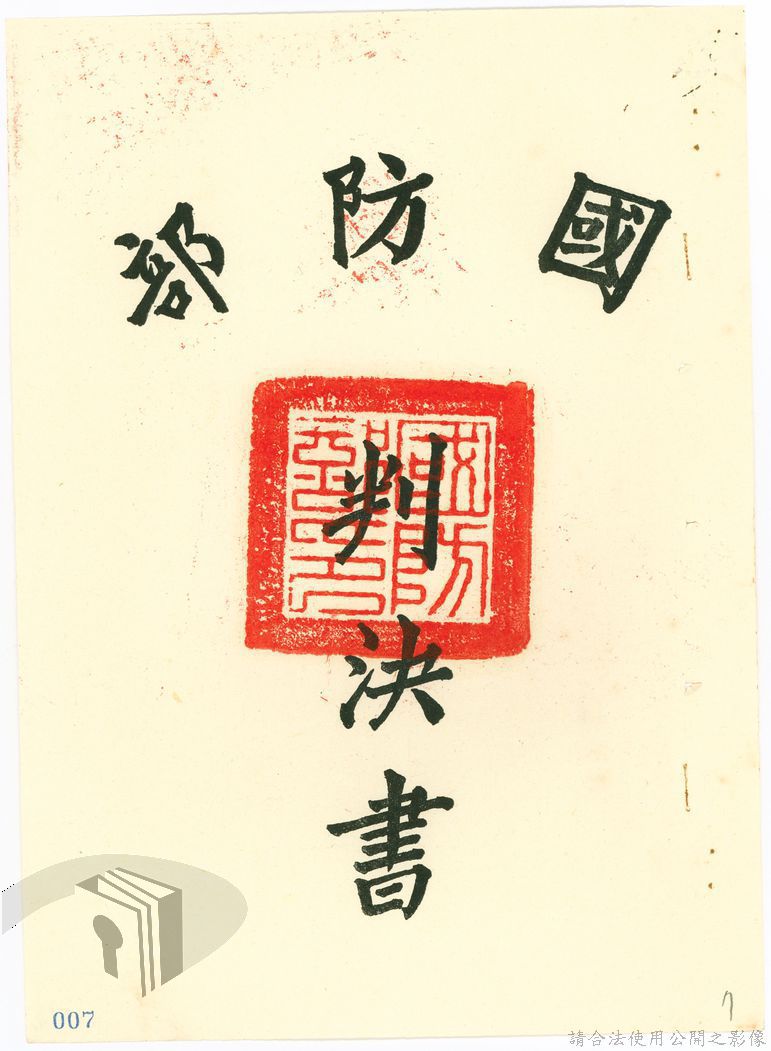 國防部
國防部印
判決書
007
7
請合法使用公開之影像